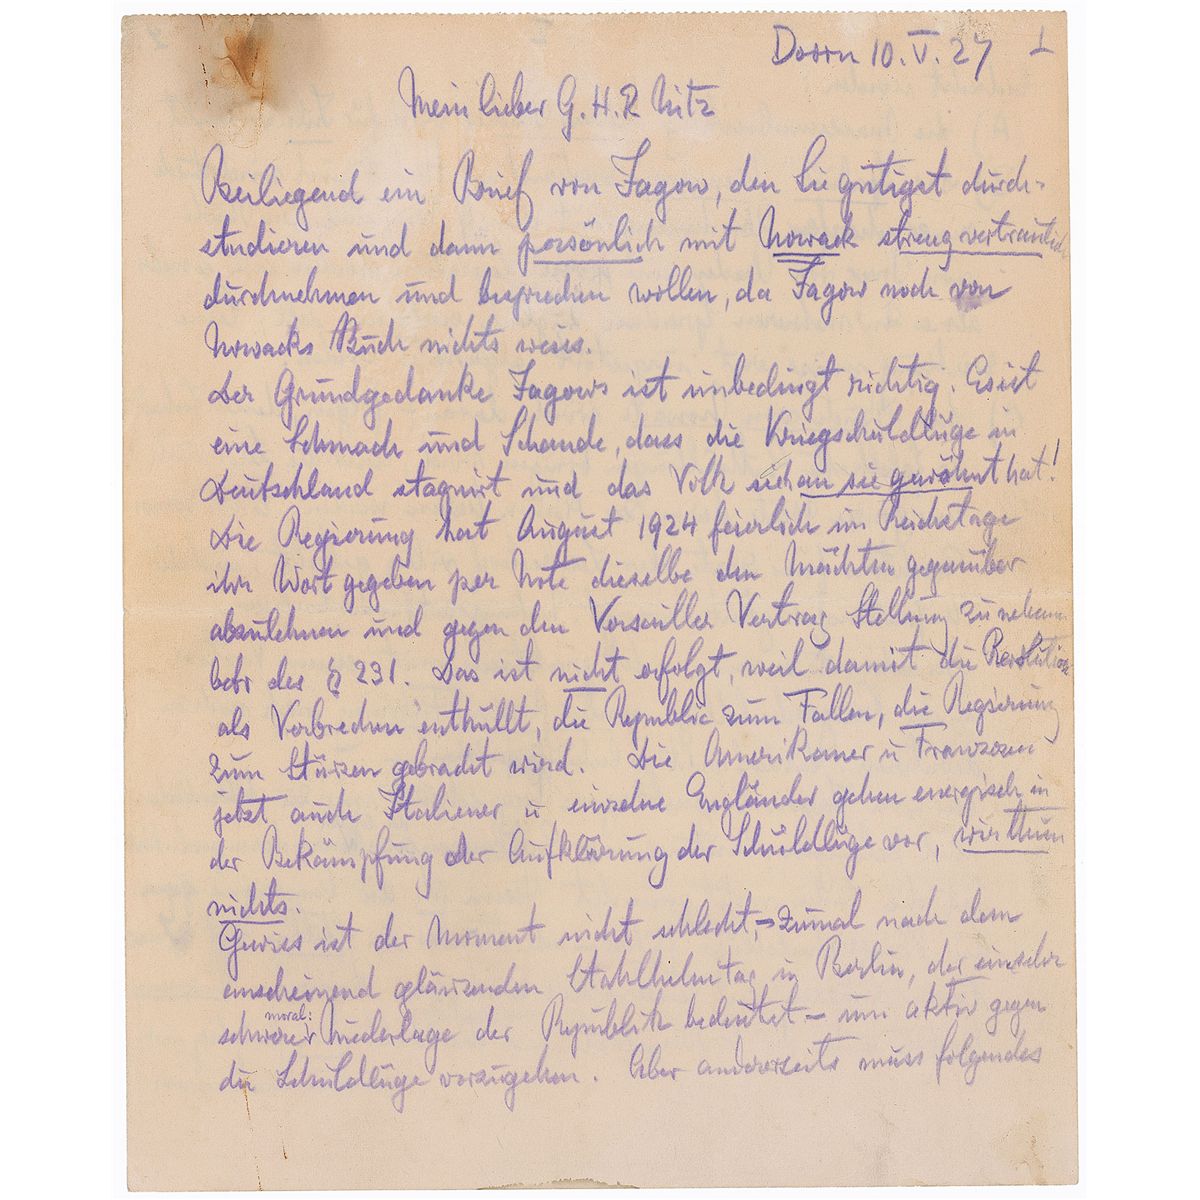 Doorn 10.V.27 I
Mein lieber G. H. R Nitz
Beiliegend ein Brief von Jagow, den Sie gütigst durch-
studieren und dann persönlich mit Nowack streng vertraulich
durchnehmen und besprechen wollen, da Jagow noch von
Nowacks Buch nichts weiss.
Der Grundgedanke Jagows ist unbedingt richtig. Es ist
eine Schmach und Schande, dass die Kriegschuldlüge in
Deutschland stagnirt und das Volk sich an sie gewöhnt hat!
Die Regierung hat August 1924 feierlich im Reichstage
ihr Wort gegeben per Note dieselbe den Mächten gegenüber
abzulehnen und gegen den Versailler Vertrag Stellung zu nehmen
betr des § 231. Das ist nicht erfolgt, weil damit die Revolution
als Verbrechen enthüllt, die Republic zum Fallen, die Regierung
zum Stürzen gebracht wird. Die Amerikaner u Franzosen
jetzt auch Italiener u einzelne Engländer gehen energisch in
der Bekämpfung der Aufklärung der Schuldlüge vor, wir thun
nichts.
Gewiss ist der Moment nicht schlecht, – zumal nach dem
anscheinend glänzenden Stahlhelmtag in Berlin, der eine sehr
schwere moral: Niederlage der Republik bedeutet – um aktiv gegen
die Schuldlüge vorzugehen. Aber anderseits muss folgendes